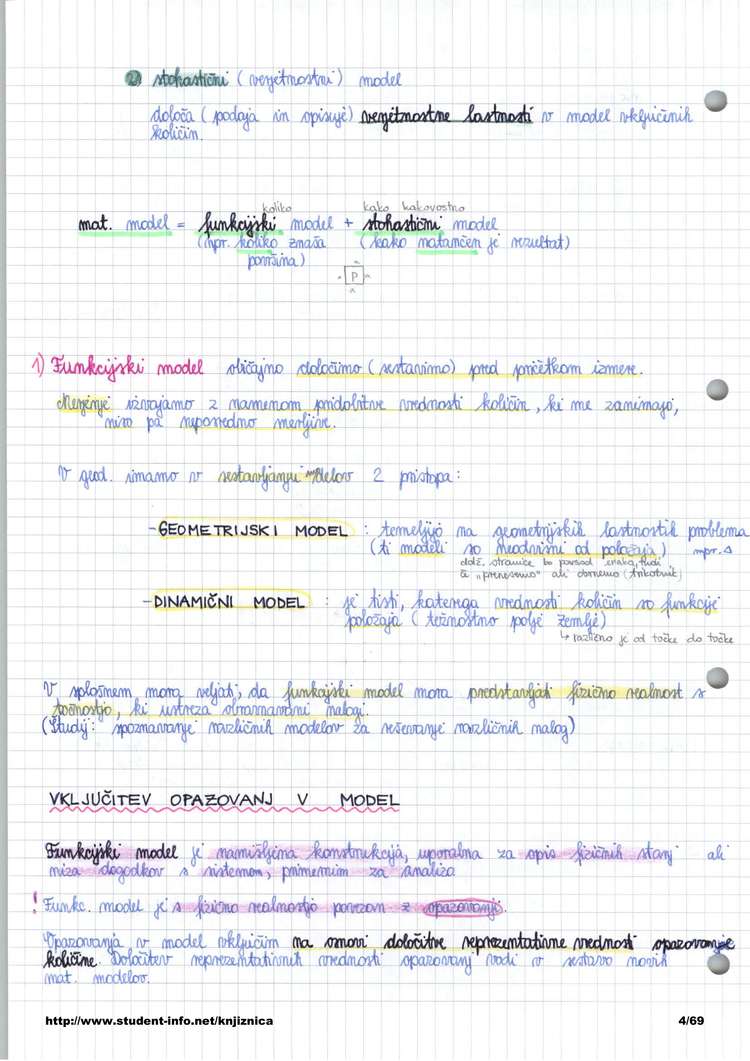 2) stohastični (verjetnostni) model
določa (podaja in opisuje) verjetnostne lastnosti v model vključenih
količin.
koliko kako kakovostno
mat. model = funkcijski model + stohastični model
(npr. koliko znaša (kako natančen je rezultat)
površina)
P
1) Funkcijski model običajno določimo (sestavimo) pred pričetkom izmere.
Merjenje izvajamo z namenom pridobitve vrednosti količin, ki me zanimajo,
niso pa neposredno merljive.
V geod. imamo v sestavljanju modelov 2 pristopa:
- GEOMETRIJSKI MODEL : temeljijo na geometrijskih lastnostih problema
(ti modeli so neodvisni od položaja) npr. Δ
dolž. stranice bo povsod enaka, tudi
če "prenesemo" ali obrnemo (trikotnik)
- DINAMIČNI MODEL : je tisti, katerega vrednosti količin so funkcije
položaja (težnostno polje Zemlje)
↳ različno je od točke do točke
V splošnem mora veljati, da funkcijski model mora predstavljati fizično realnost s
točnostjo, ki ustreza obravnavani nalogi.
(Študij: spoznavanje različnih modelov za reševanje različnih nalog)
VKLJUČITEV OPAZOVANJ V MODEL
Funkcijski model je namišljena konstrukcija, uporabna za opis fizičnih stanj ali
niza dogodkov s sistemom, primernim za analizo
! Funkc. model je s fizično realnostjo povezan z opazovanji.
Opazovanja v model vključim na osnovi določitve reprezentativne vrednosti opazovanje
količine. Določitev reprezentativnih vrednosti opazovanj vodi v sestavo novih
mat. modelov.
http://www.student-info.net/knjiznica 4/69